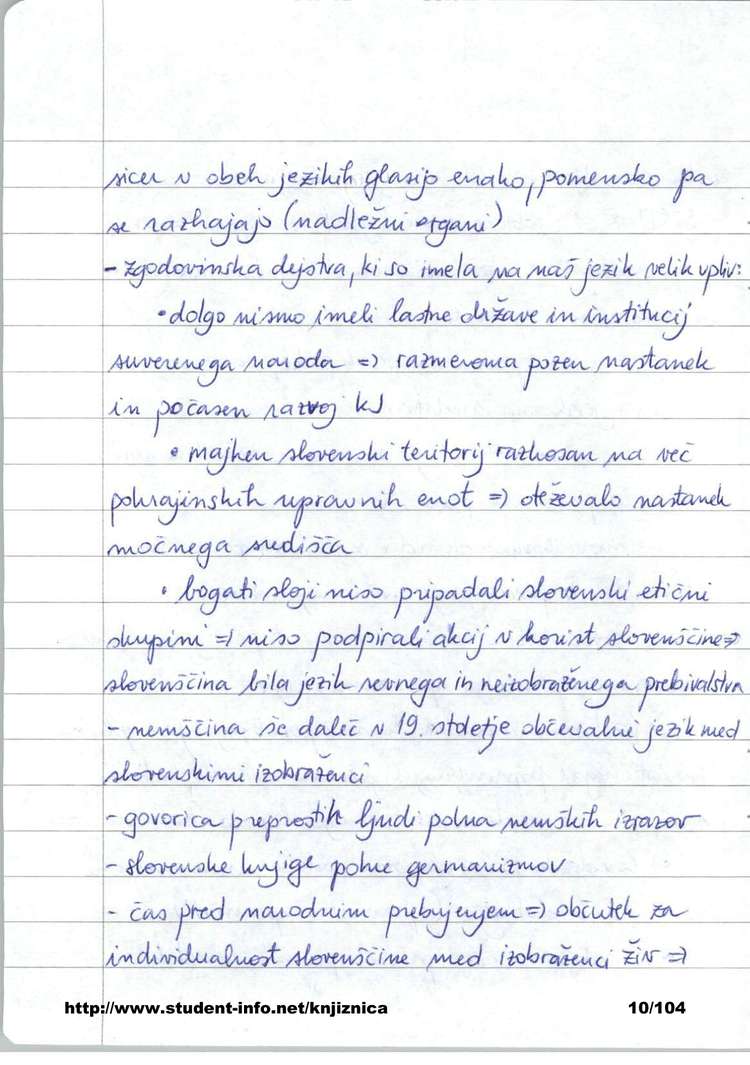 sicer v obeh jezikih glasijo enako, pomensko pa
se razhajajo (nadležni organi)
- zgodovinska dejstva, ki so imela na naš jezik velik vpliv:
• dolgo nismo imeli lastne države in institucij
suverenega naroda => razmeroma pozen nastanek
in počasen razvoj KJ
• majhen slovenski teritorij razkosan na več
pokrajinskih upravnih enot => oteževalo nastanek
močnega središča
• bogati sloji niso pripadali slovenski etični
skupini => niso podpirali akcij v korist slovenščine =>
slovenščina bila jezik revnega in neizobraženega prebivalstva
- nemščina še daleč v 19. stoletje občevalni jezik med
slovenskimi izobraženci
- govorica preprostih ljudi polna nemških izrazov
- slovenske knjige polne germanizmov
- čas pred narodnim prebujenjem => občutek za
individualnost slovenščine med izobraženci živ =>
http://www.student-info.net/knjiznica 10/104